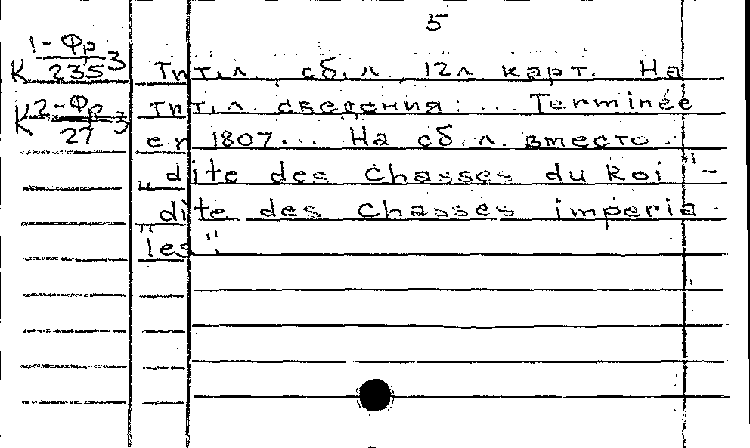 5
К 1-Фр/235 3
Тит.л., сб.л., 12л карт. На
К 2-Фр/27 3
тит.л. сведения: ... Terminée
en 1807... На сб.л. вместо
„dite des Chasses du Roi" -
„dite des Chasses impéria-
les".